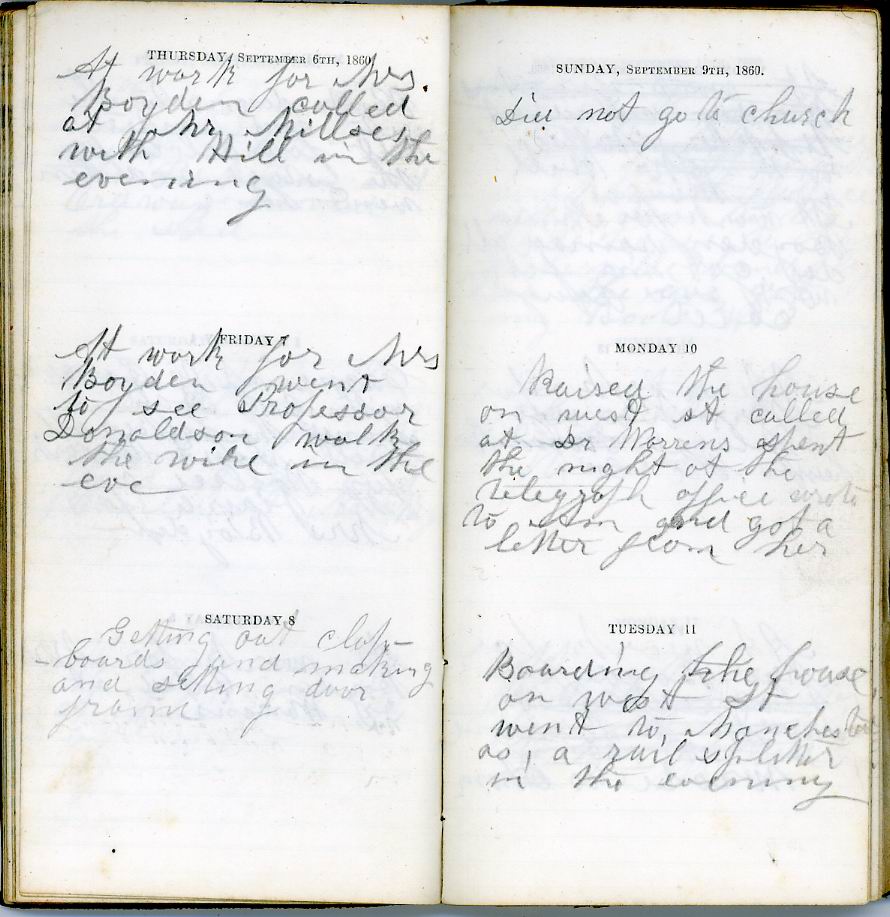 THURSDAY, SEPTEMBER 6TH, 1860.
At work for Mrs.
Boyden called
at Mr Millses
with Hill in the
evening
FRIDAY 7
At work for Mrs
Boyden went
to see Professor
Donaldson walk
the wire in the
eve
SATURDAY 8
Getting out clap-
-boards and making
and setting door
frame
SUNDAY, SEPTEMBER 9TH, 1860.
Did not go to church
MONDAY 10
Raised the house
on west st called
at Dr Warrens spent
the night at the
telegraph office wrote
to Em and got a
letter from her
TUESDAY 11
Boarding the house
on west St
went to, Manchester
as, a rail splitter
in the evening